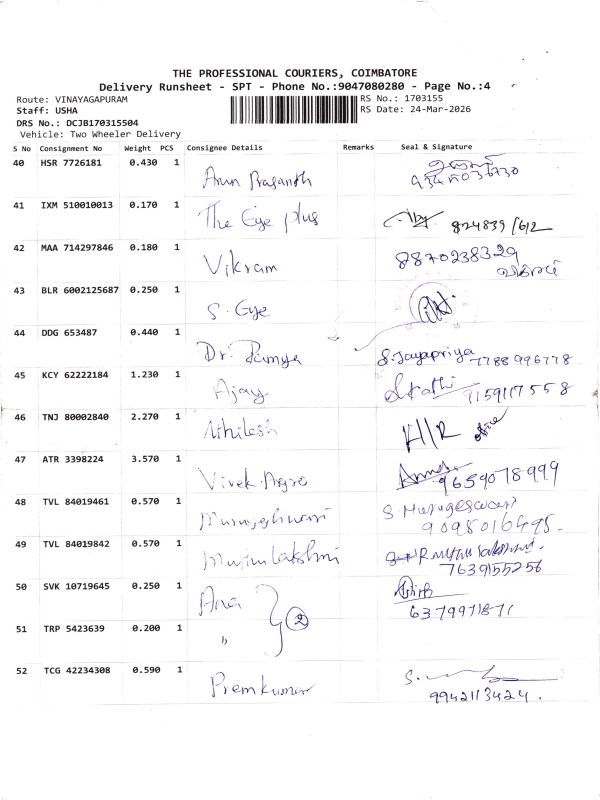 THE PROFESSIONAL COURIERS, COIMBATORE
Delivery Runsheet - SPT - Phone No.:9047080280 - Page No.:4
Route: VINAYAGAPURAM
RS No.: 1703155
Staff: USHA
RS Date: 24-Mar-2026
DRS No.: DCJB170315504
Vehicle: Two Wheeler Delivery
S No Consignment No Weight PCS Consignee Details Remarks Seal & Signature
40 HSR 7726181 0.430 1 Arun Prasanth
41 IXM 510010013 0.170 1 The Eye plus 824839/612
42 MAA 714297846 0.180 1 Vikram 8870238329
43 BLR 6002125687 0.250 1 S. Eye
44 DDG 653487 0.440 1 Dr. Ramya S. Jayapriya 7788996778
45 KCY 62222184 1.230 1 Ajay 9159117558
46 TNJ 80002840 2.270 1 Nihilesh H/R office
47 ATR 3398224 3.570 1 Vivek Agro 9659078999
48 TVL 84019461 0.570 1 Murugeshwari S Murugeswari
9098016495.
49 TVL 84019842 0.570 1 Muthulakshmi R Muthulakshmi.
7639155256
50 SVK 10719645 0.250 1 6379971871
51 TRP 5423639 0.200 1 " 2
52 TCG 42234308 0.590 1 Premkumar
9942113424.